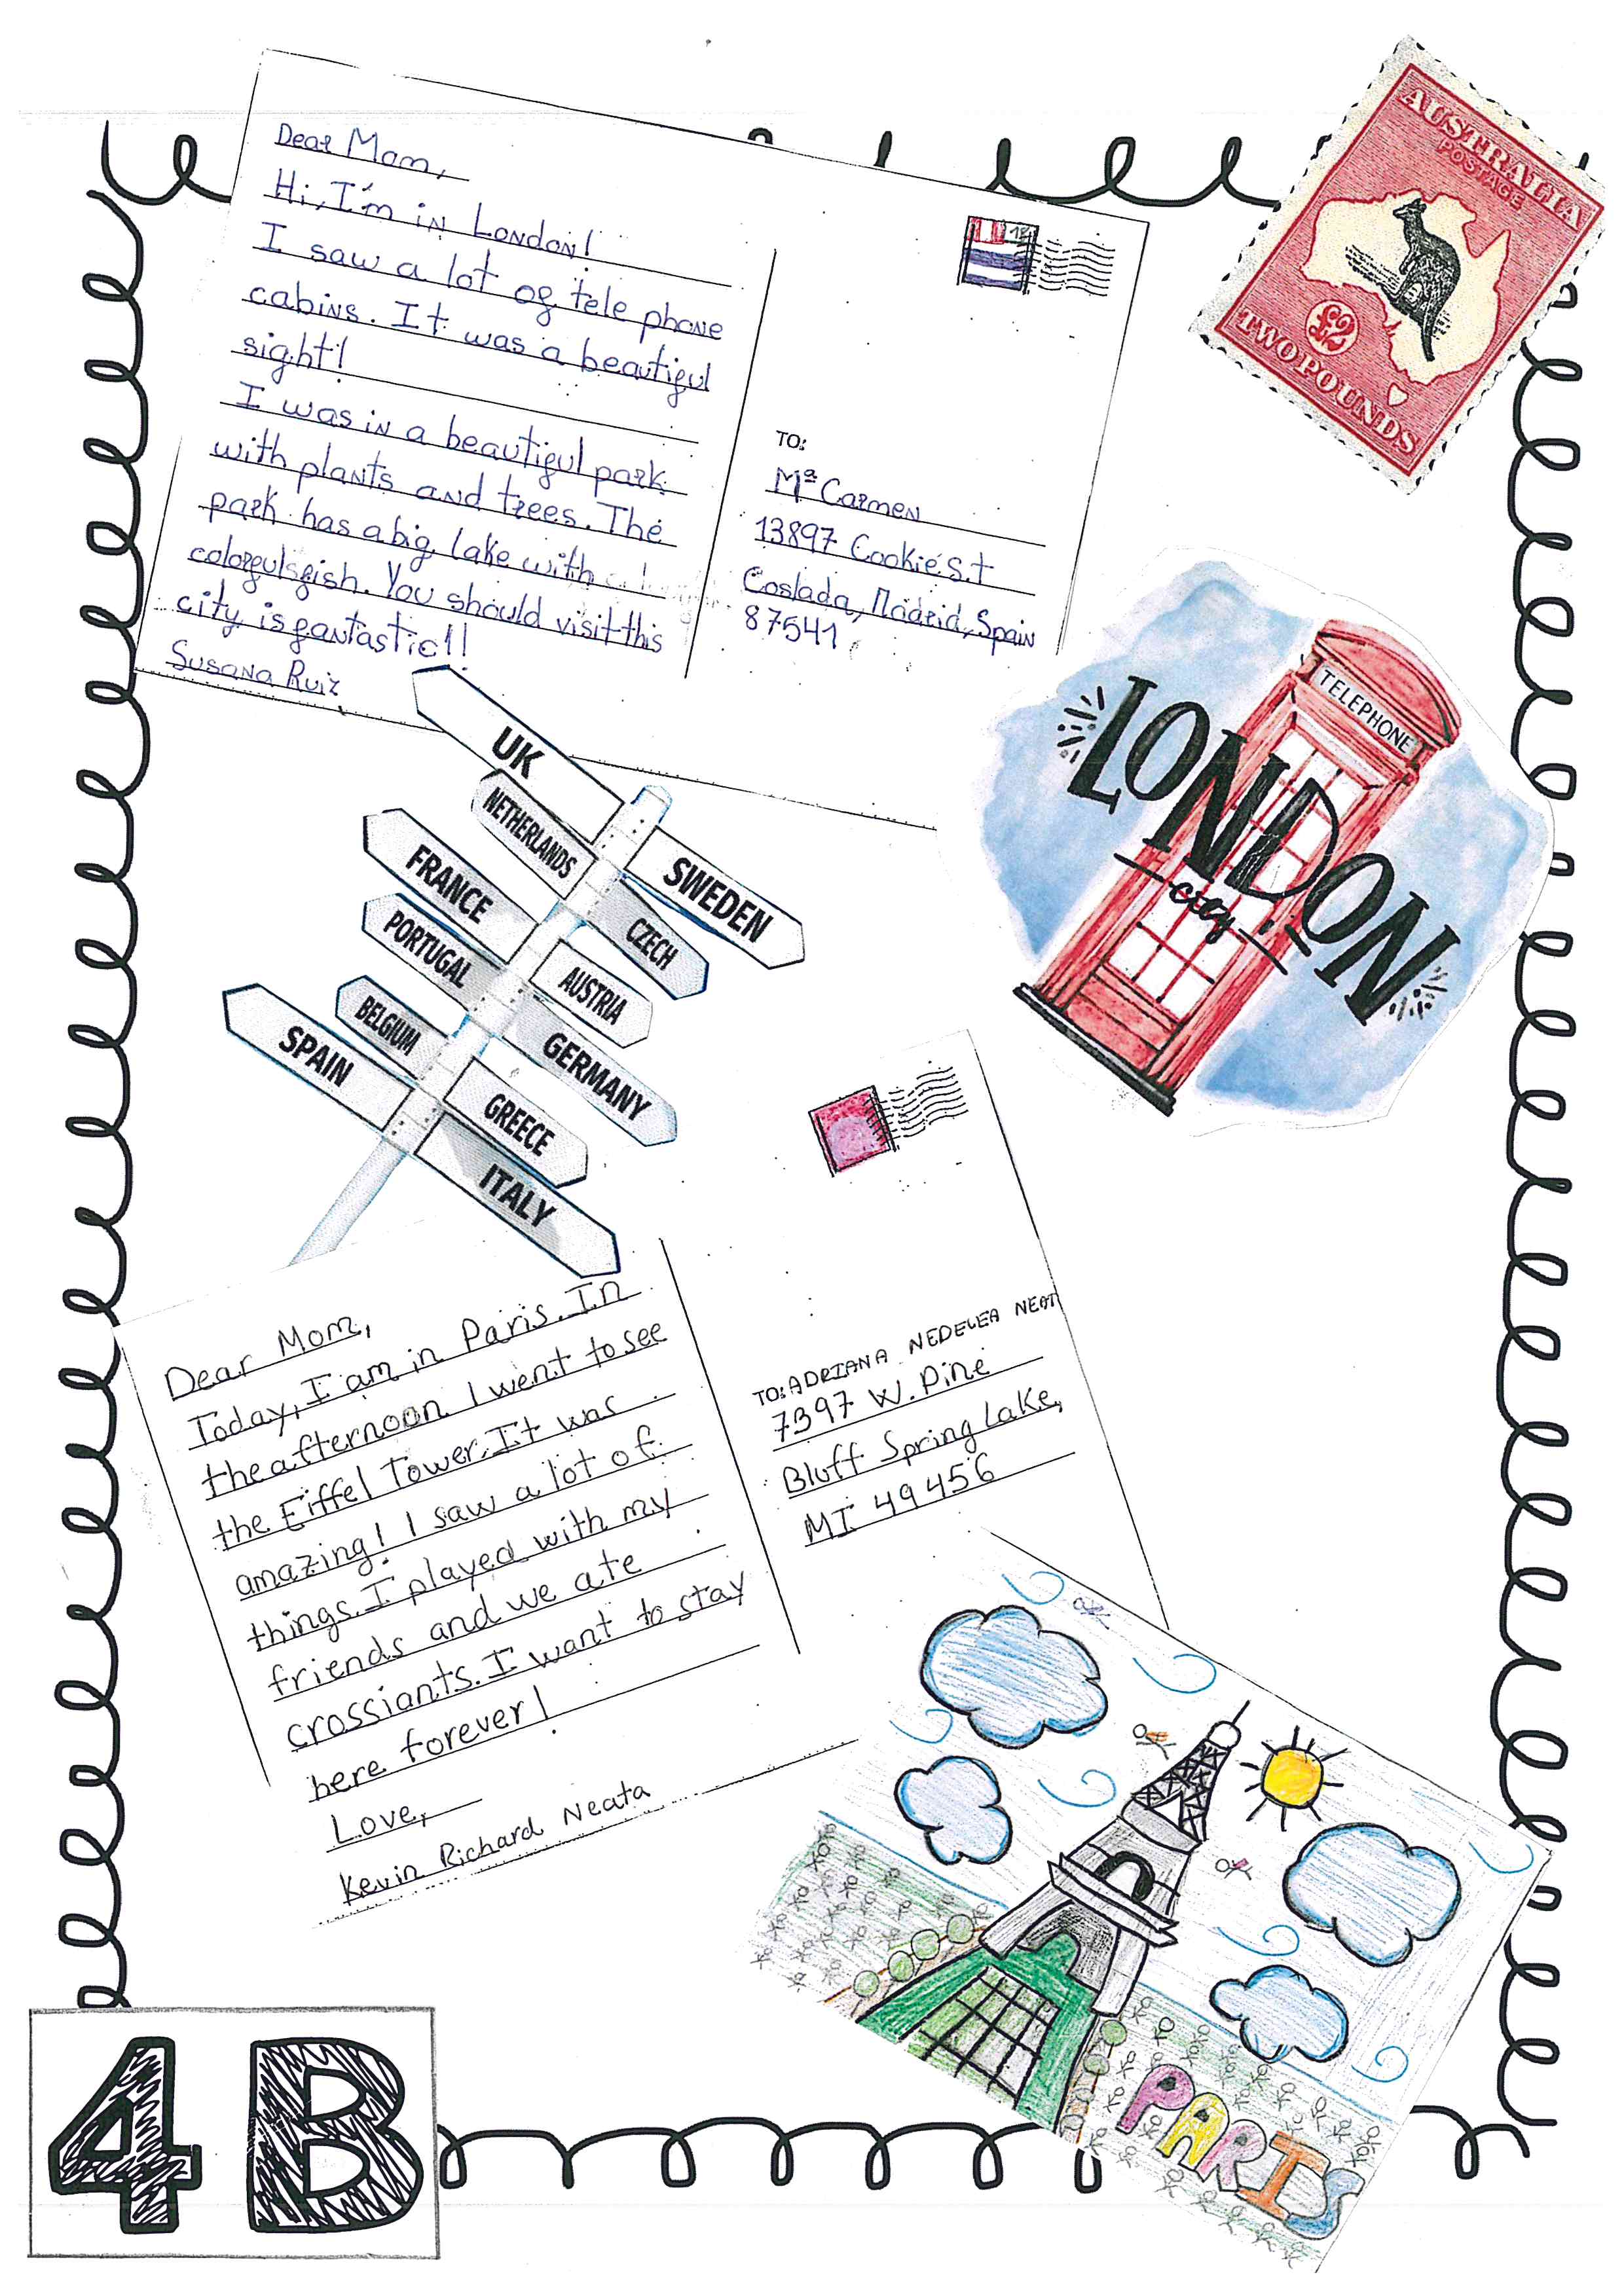 Dear Mom,
Hi, I'm in London!
I saw a lot of tele phone
cabins. It was a beautiful
sight!
I was in a beautiful park
with plants and trees. The
park has a big lake with
colorful fish. You should visit this
city is fantastic!!
Susana Ruiz
TO:
Mª Carmen
13897 Cookie S.t
Coslada, Madrid, Spain
87541
AUSTRALIA
POSTAGE
£2
TWO POUNDS
TELEPHONE
LONDON
city
UK
NETHERLANDS
SWEDEN
FRANCE
CZECH
PORTUGAL
AUSTRIA
BELGIUM
GERMANY
SPAIN
GREECE
ITALY
Dear Mom,
Today, I am in Paris. In
the afternoon I went to see
the Eiffel Tower. It was
amazing! I saw a lot of
things. I played with my
friends and we ate
crossiants. I want to stay
here forever!
Love,
Kevin Richard Neata
TO: ADRIANA NEDELEA
7397 W. Pine
Bluff Spring Lake,
MI 49456
PARIS
4B